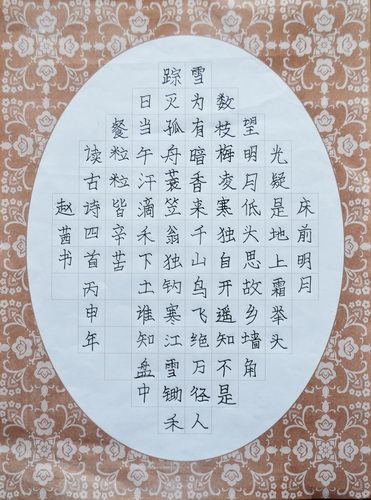 床前明月
光疑是地上霜举头
望明月低头思故乡墙角
数枝梅凌寒独自开遥知不是
雪为有暗香来千山鸟飞绝万径人
踪灭孤舟蓑笠翁独钓寒江雪锄禾
日当午汗滴禾下土谁知盘中
餐粒粒皆辛苦
读古诗四首丙申年
赵茜书